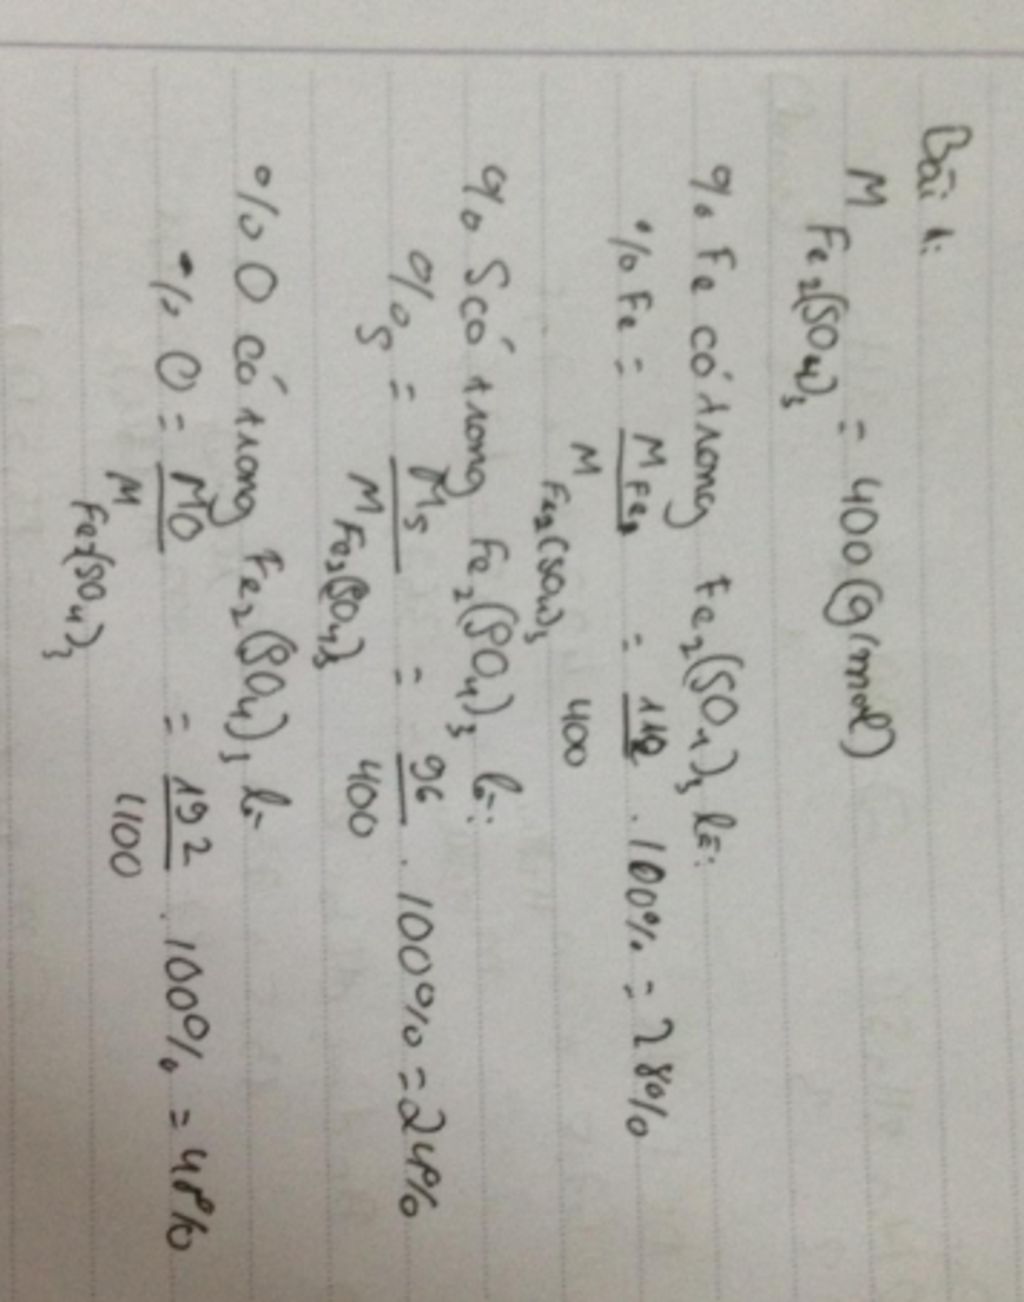 Bài 1:
M Fe2(SO4)3 = 400 (g/mol)
% Fe có trong Fe2(SO4)3 là:
% Fe = M Fe2 / M Fe2(SO4)3 = 112 / 400 . 100% = 28%
% S có trong Fe2(SO4)3 là:
% S = M S / M Fe2(SO4)3 = 96 / 400 . 100% = 24%
% O có trong Fe2(SO4)3 là
% O = M O / M Fe2(SO4)3 = 192 / 400 . 100% = 48%